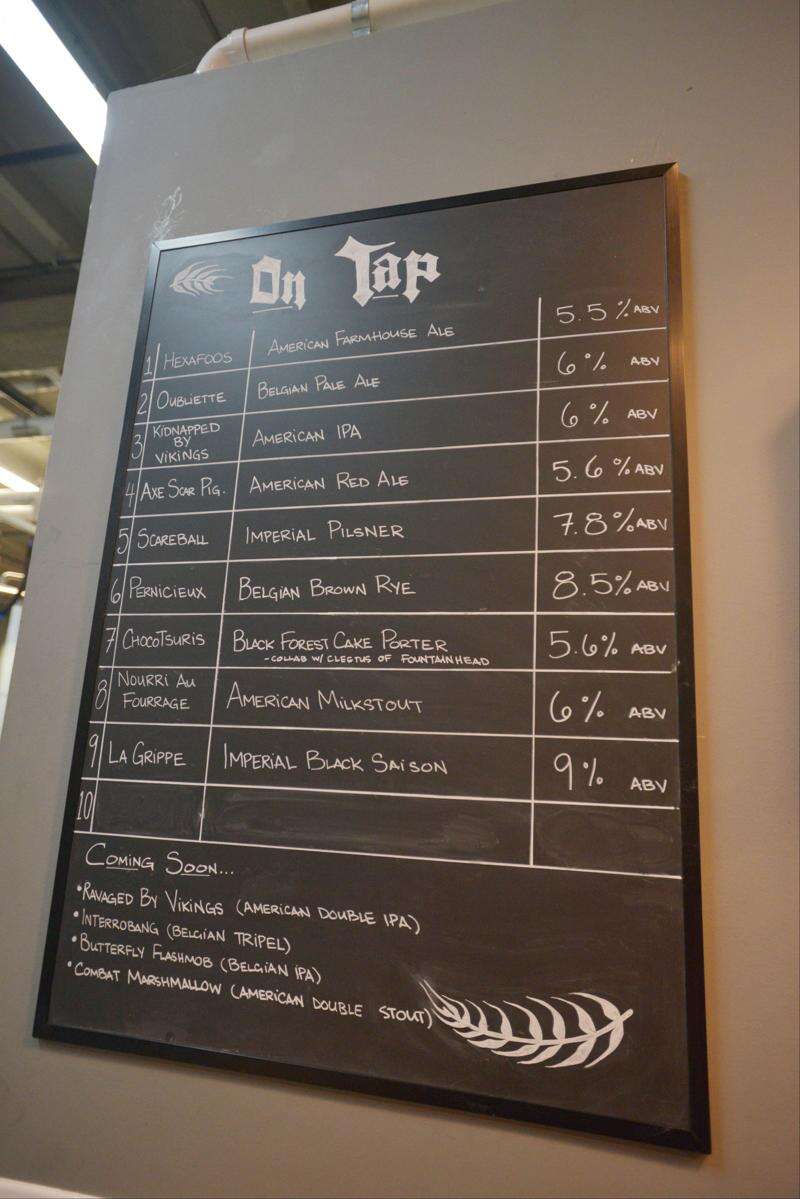 On Tap
1 HEXAFOOS AMERICAN FARMHOUSE ALE 5.5% ABV
2 OUBLIETTE BELGIAN PALE ALE 6% ABV
3 KIDNAPPED BY VIKINGS AMERICAN IPA 6% ABV
4 AXE SCAR PIG. AMERICAN RED ALE 5.6% ABV
5 SCAREBALL IMPERIAL PILSNER 7.8% ABV
6 PERNICIEUX BELGIAN BROWN RYE 8.5% ABV
7 CHOCOTSURIS BLACK FOREST CAKE PORTER 5.6% ABV
-COLLAB W/ CLEETUS OF FOUNTAINHEAD
8 NOURRI AU FOURRAGE AMERICAN MILKSTOUT 6% ABV
9 LA GRIPPE IMPERIAL BLACK SAISON 9% ABV
10
COMING SOON...
•RAVAGED BY VIKINGS (AMERICAN DOUBLE IPA)
•INTERROBANG (BELGIAN TRIPEL)
•BUTTERFLY FLASHMOB (BELGIAN IPA)
•COMBAT MARSHMALLOW (AMERICAN DOUBLE STOUT)